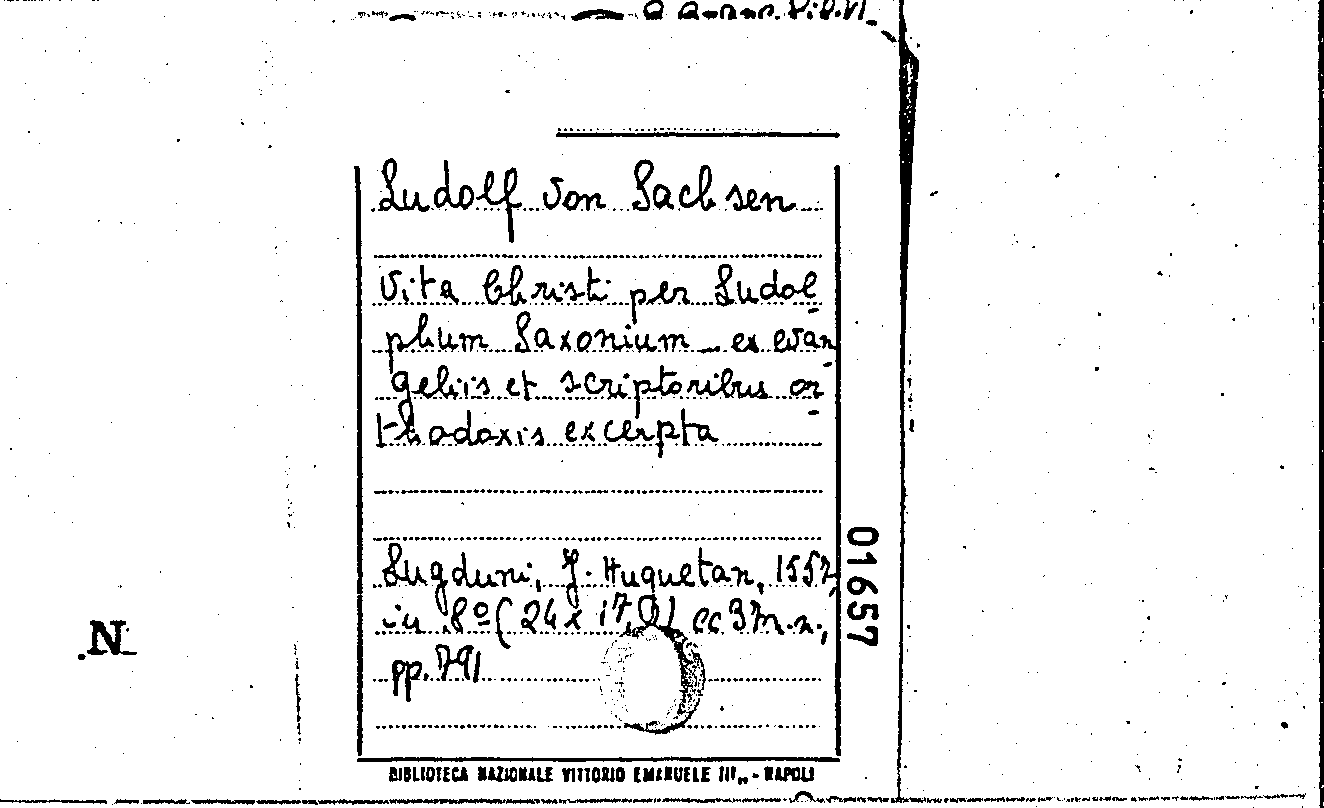 Ludolf von Sachsen
Vita Christi per Ludol
phum Saxonium ex evan
geliis et scriptoribus or
thodoxis excerpta
Lugduni, J. Huguetan, 1557,
in 8º (24 x 17,
cc 37 n.n.,
pp. 791
01657
.N.
BIBLIOTECA NAZIONALE VITTORIO EMANUELE III - NAPOLI